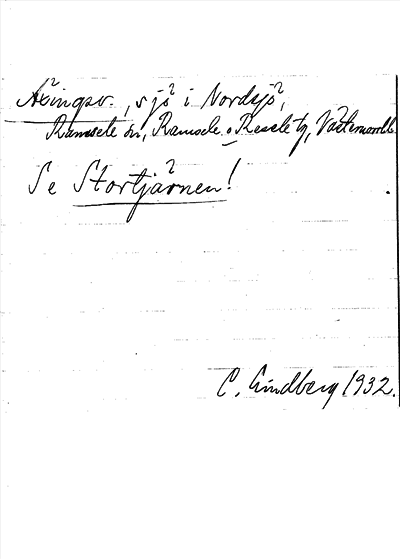 sjö i Nordsjö,
Ramsele sn, Ramsele o. Resele tg, Västernorrl.
Se Stortjärnen!
C. Lindberg 1932.